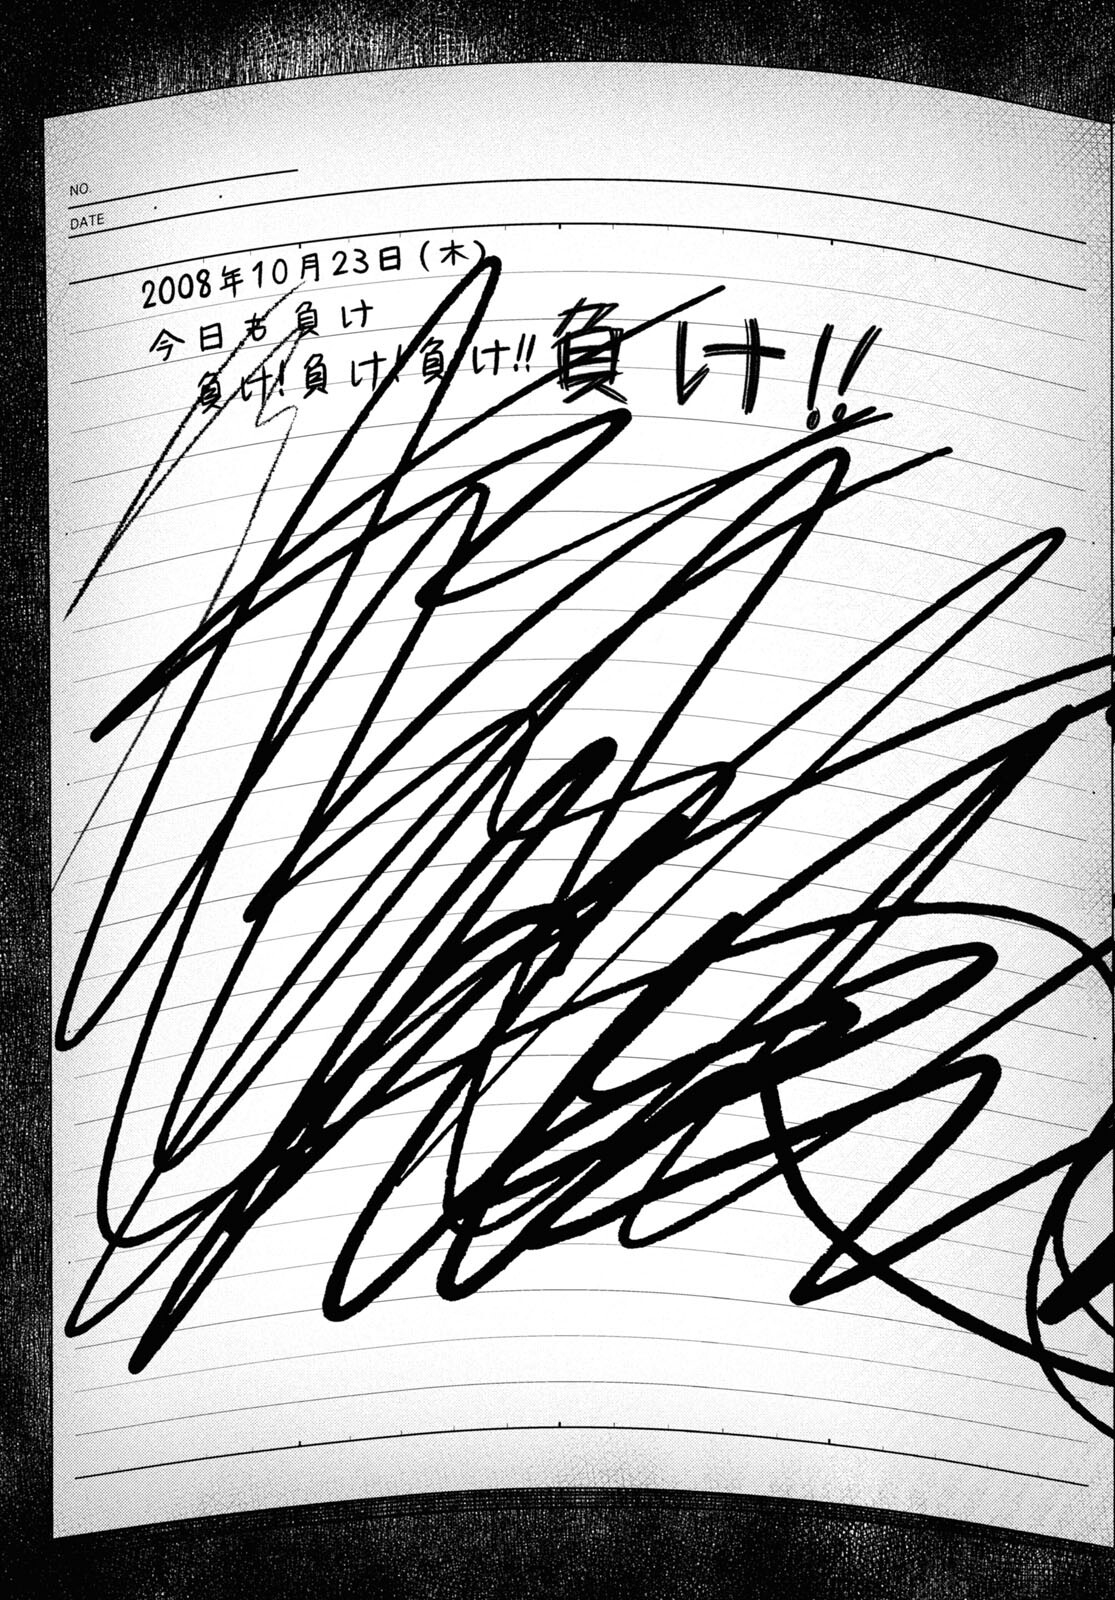 NO.
DATE
2008年10月23日(木)
今日も負け
負け!負け!負け!!負け!!